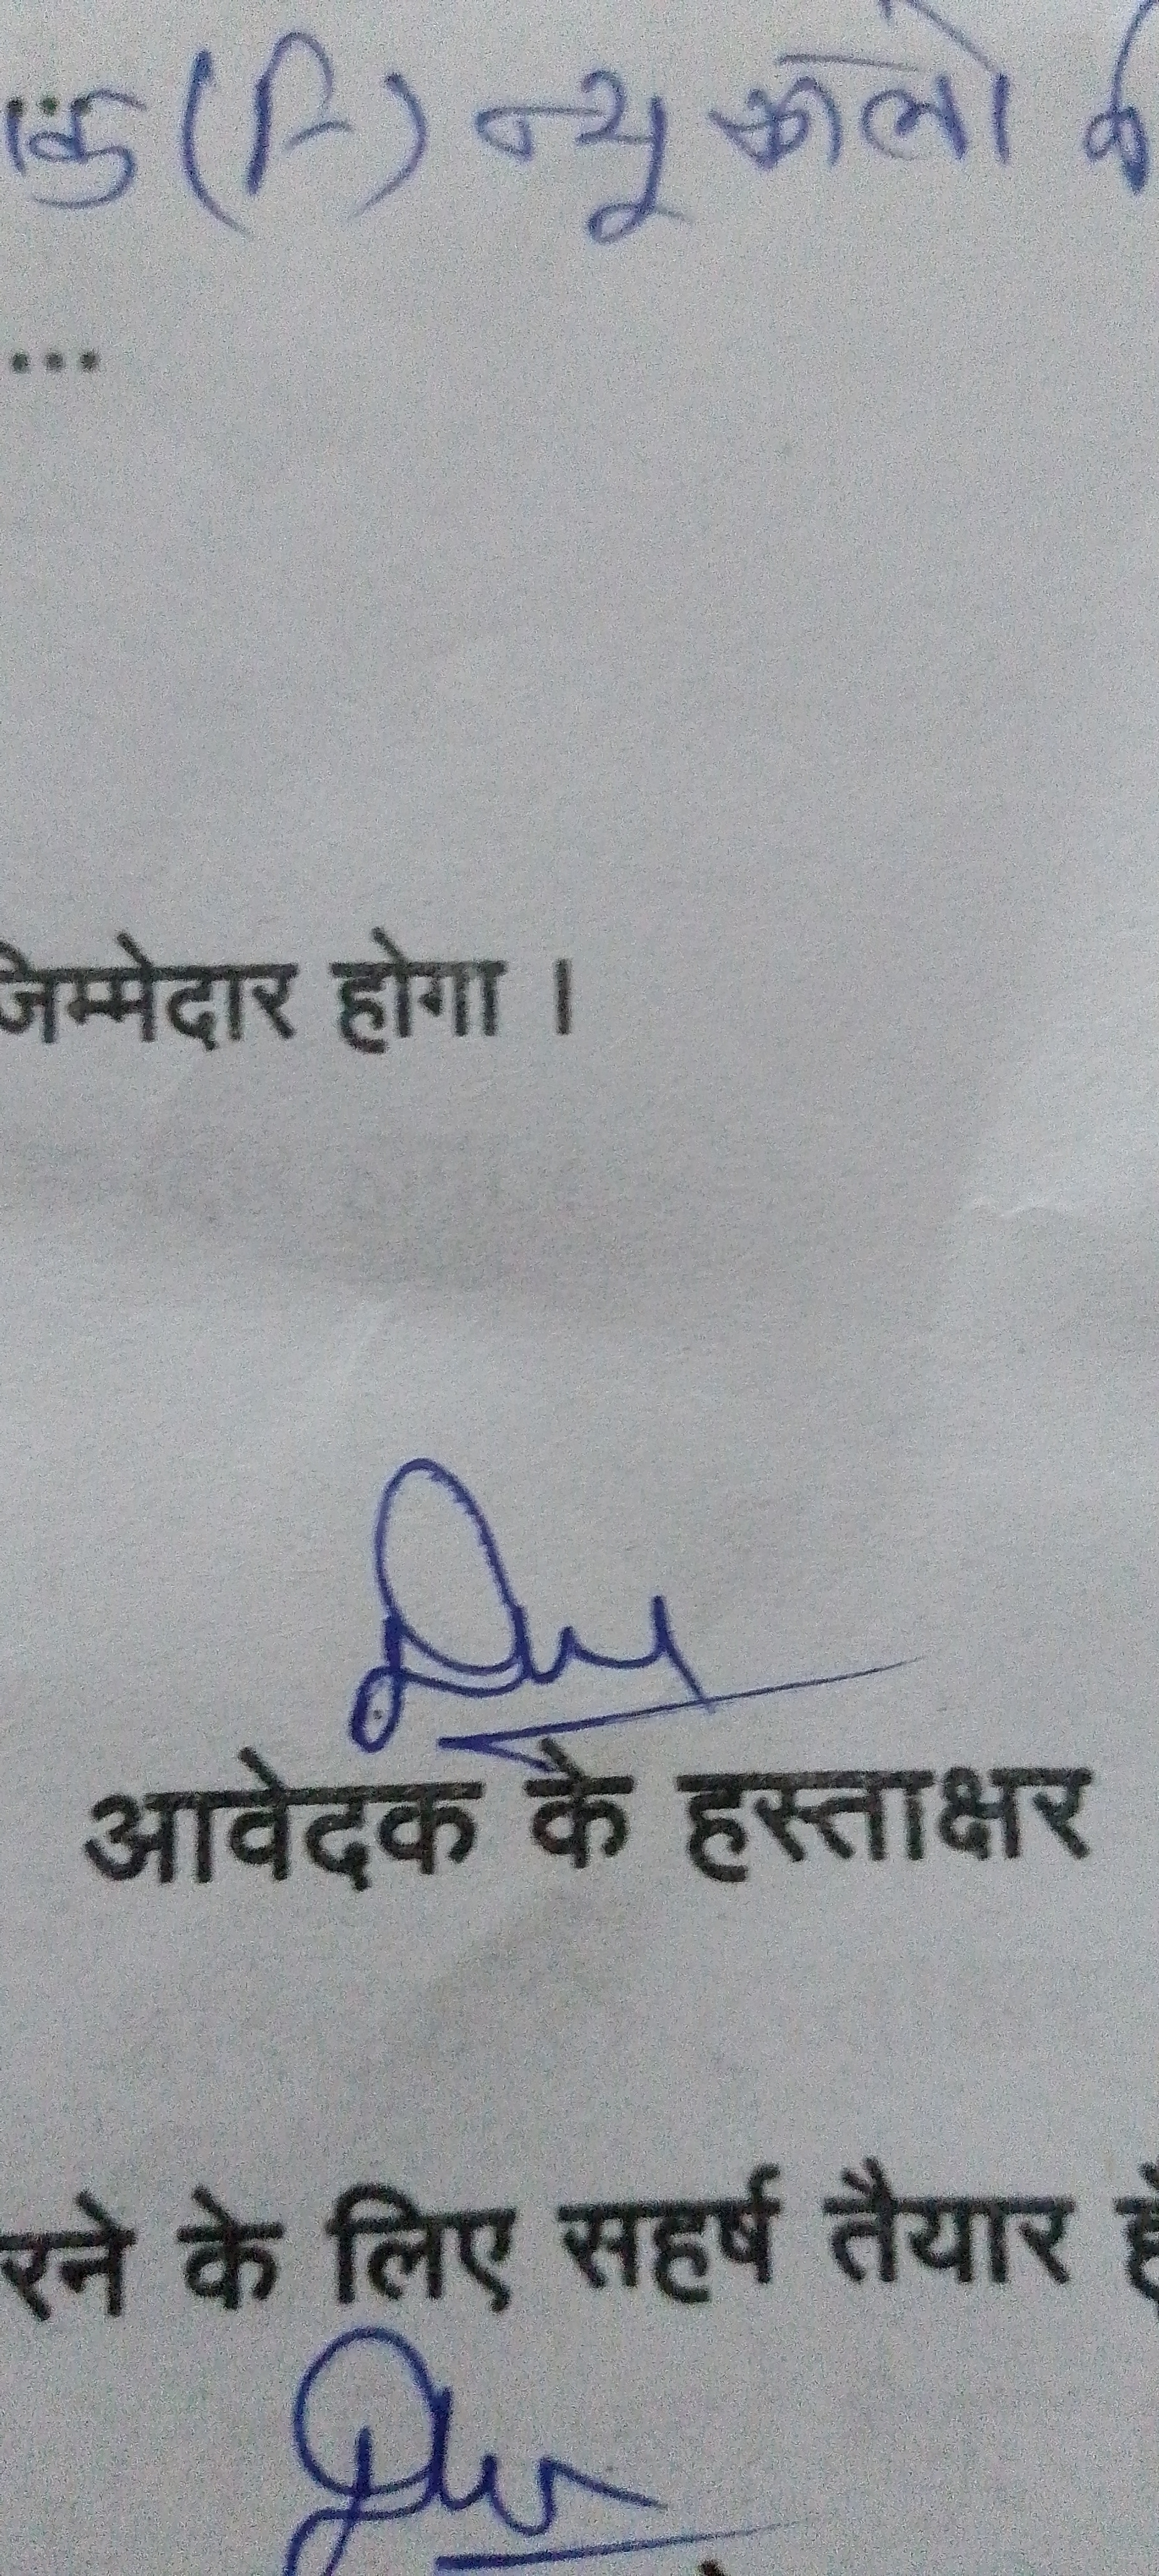 (A) न्यू कॉलो
...
जिम्मेदार होगा ।
आवेदक के हस्ताक्षर
रने के लिए सहर्ष तैयार